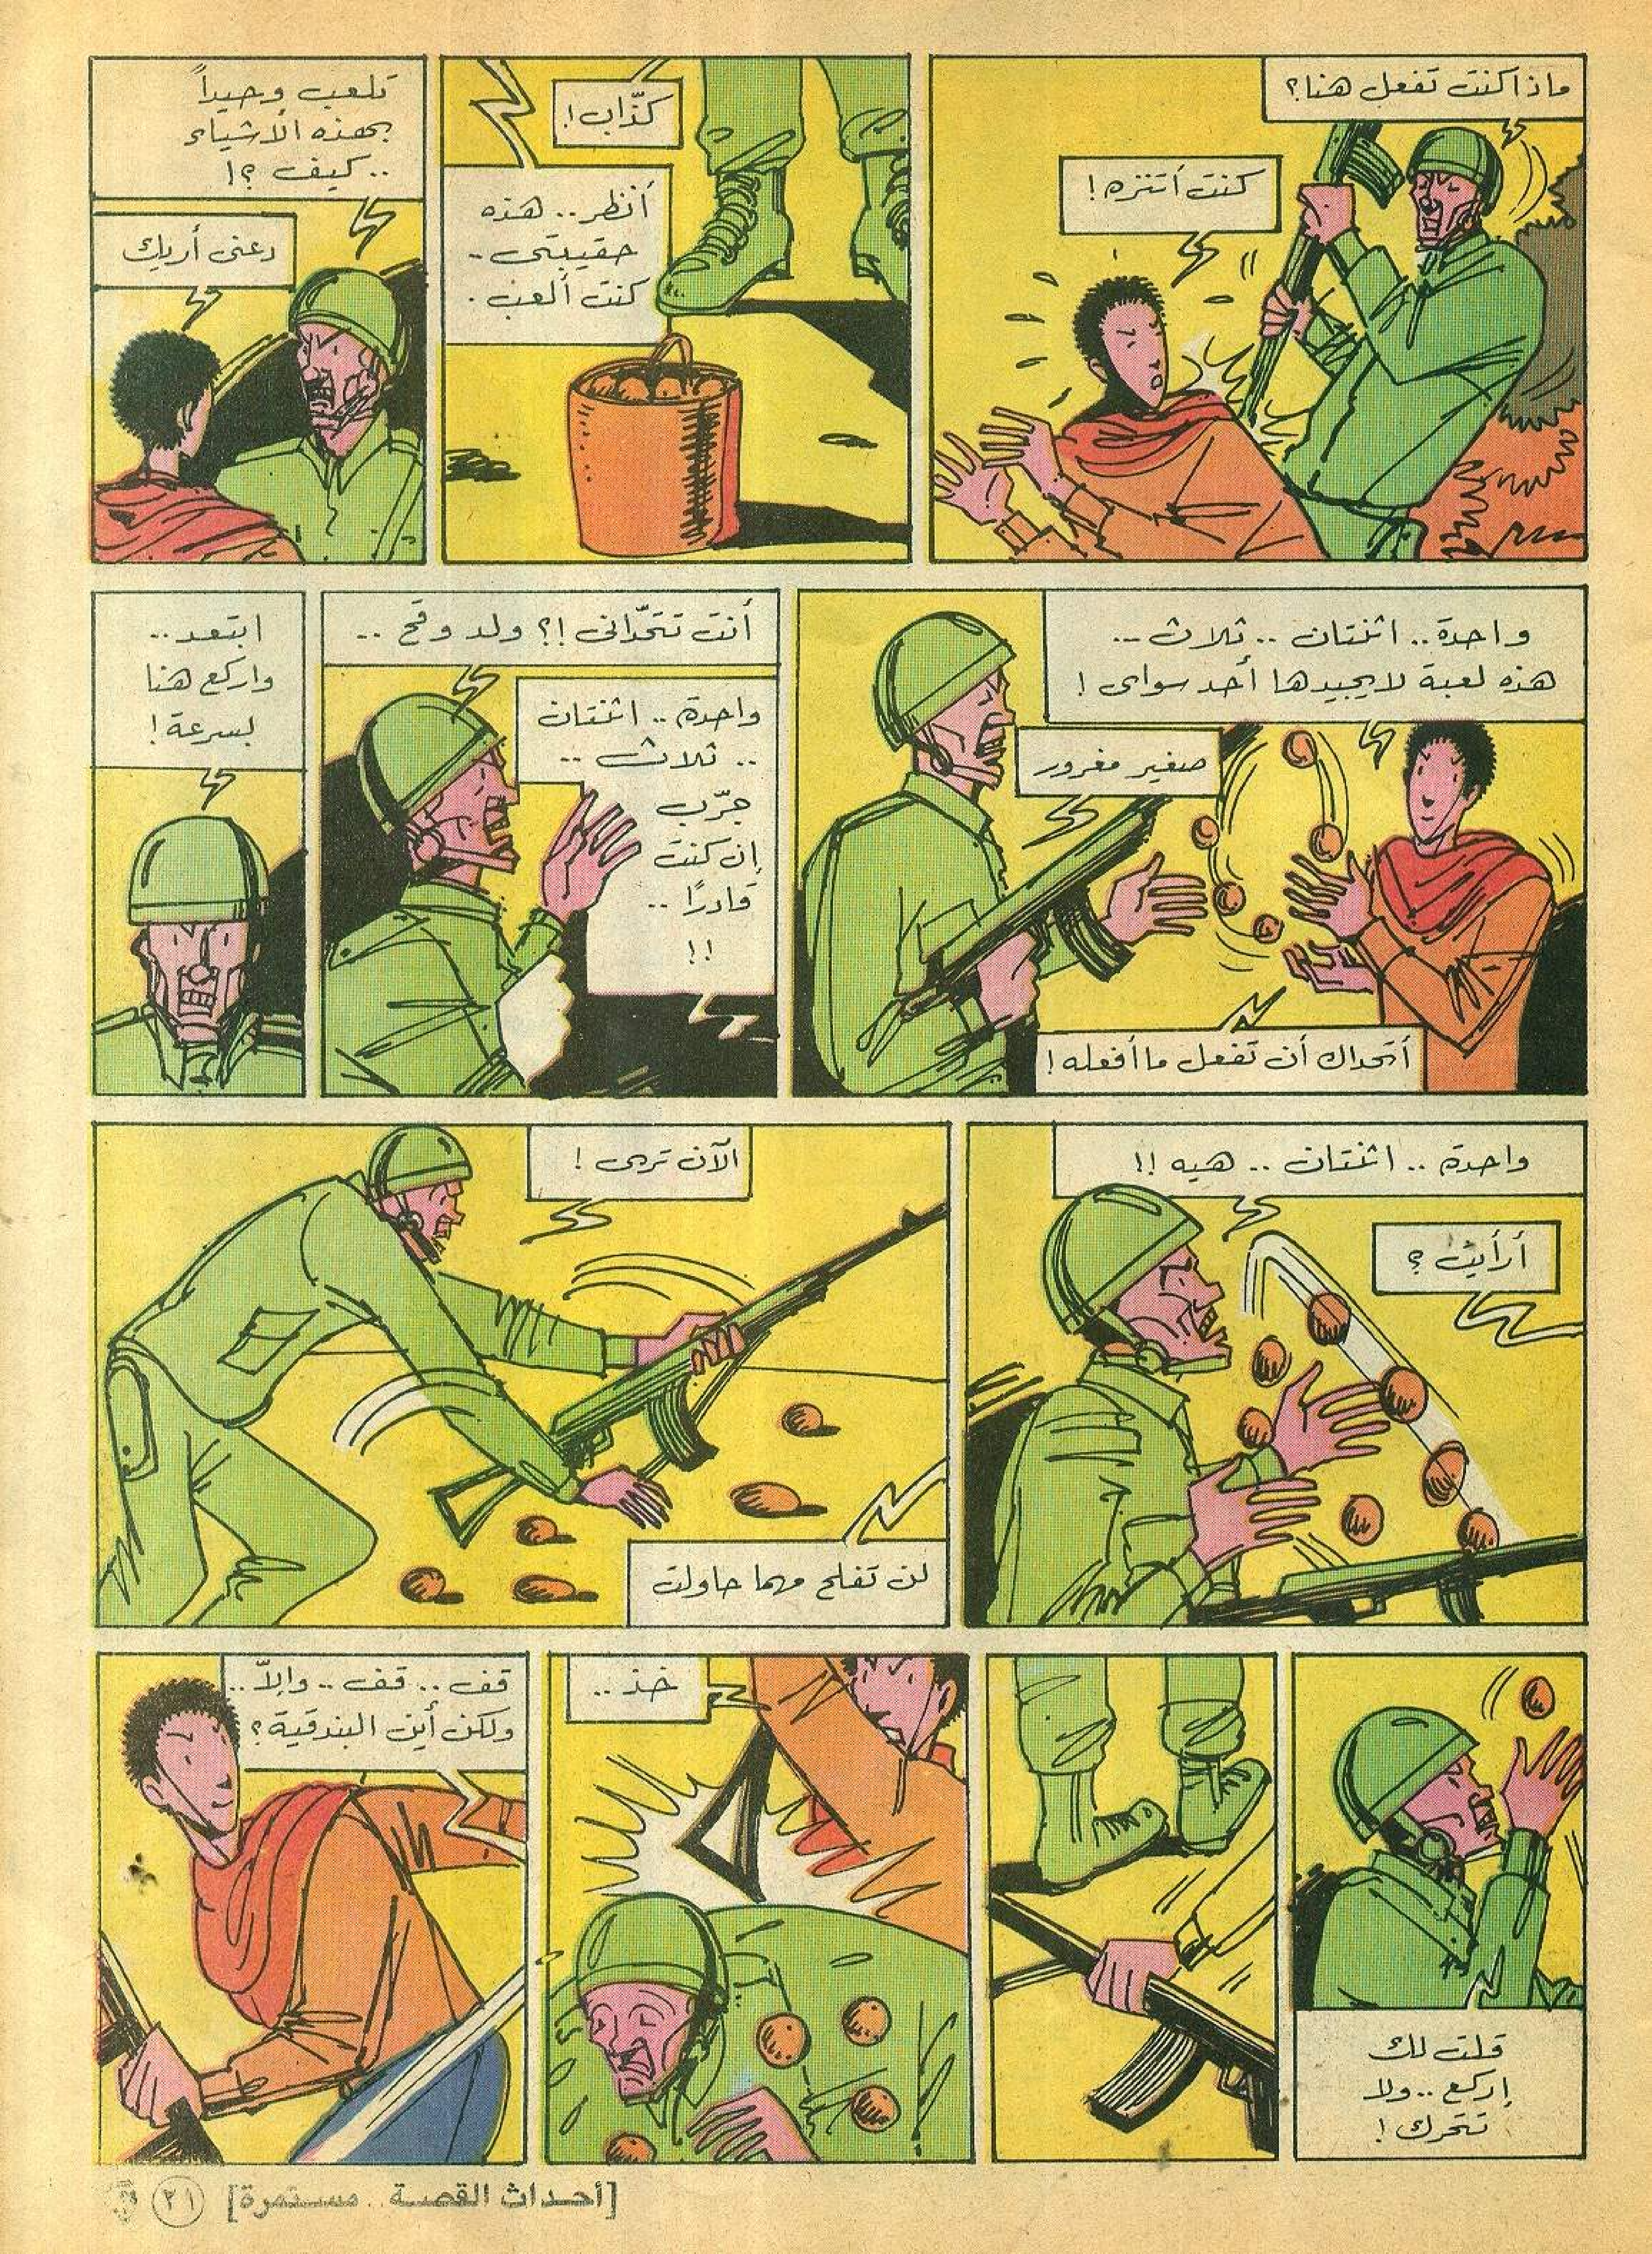 ماذا كنت تفعل هنا؟
كنت أتنزه!
كذّاب!
أنظر.. هذه
حقيبتى -
كنت ألعب.
تلعب وحيداً
بهذه الأشياء
.. كيف ؟!
دعنى أريك
واحدة.. اثنتان .. ثلاث ..
هذه لعبة لا يجيدها أحد سواى !
صغير مغرور
أتحداك أن تفعل ما أفعله !
أنت تتحّدانى !؟ ولد وقح ..
واحدة .. اثنتان
.. ثلاث ..
جرّب
إن كنت
قادرًا ..
!!
ابتعد ..
واركع هنا
بسرعة !
واحدة .. اثنتان .. هيه !!
أرأيت ؟
الآن ترى !
لن تفلح مهما حاولت
قلت لك
إركع .. ولا
تتحرك !
خذ ..
قف .. قف .. وإلاّ ..
ولكن أين البندقية ؟
[أحداث القصة .. مستمرة]
٢١